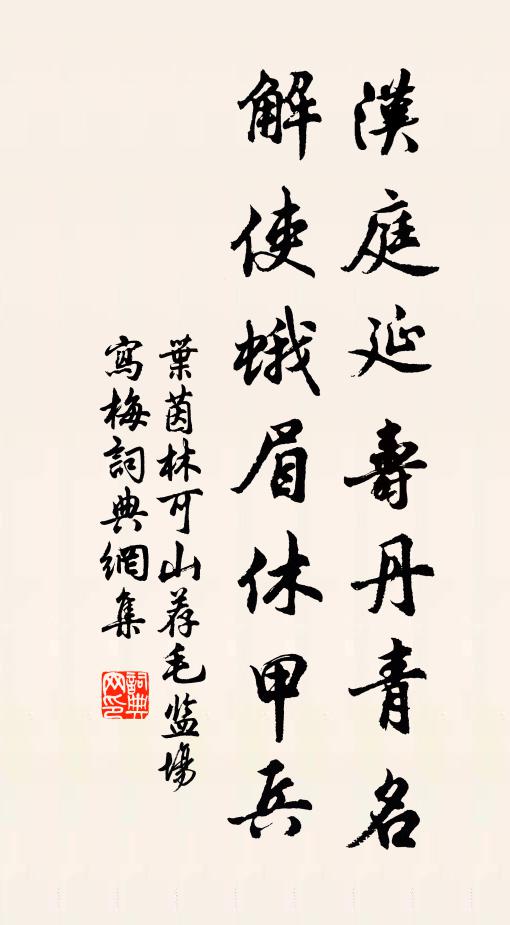 漢庭延壽丹青名
解使蛾眉休甲兵
葉茵林可山荐毛监場
寫梅詞典網集
詞典網印